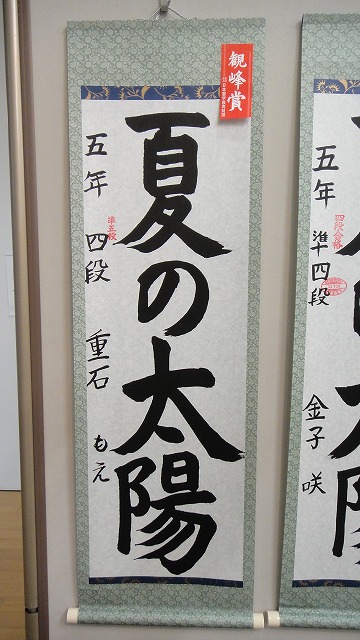 観峰賞
夏の太陽
準五段
五年 四段 重石 もえ
四段合格
五年 準四段 金子 咲